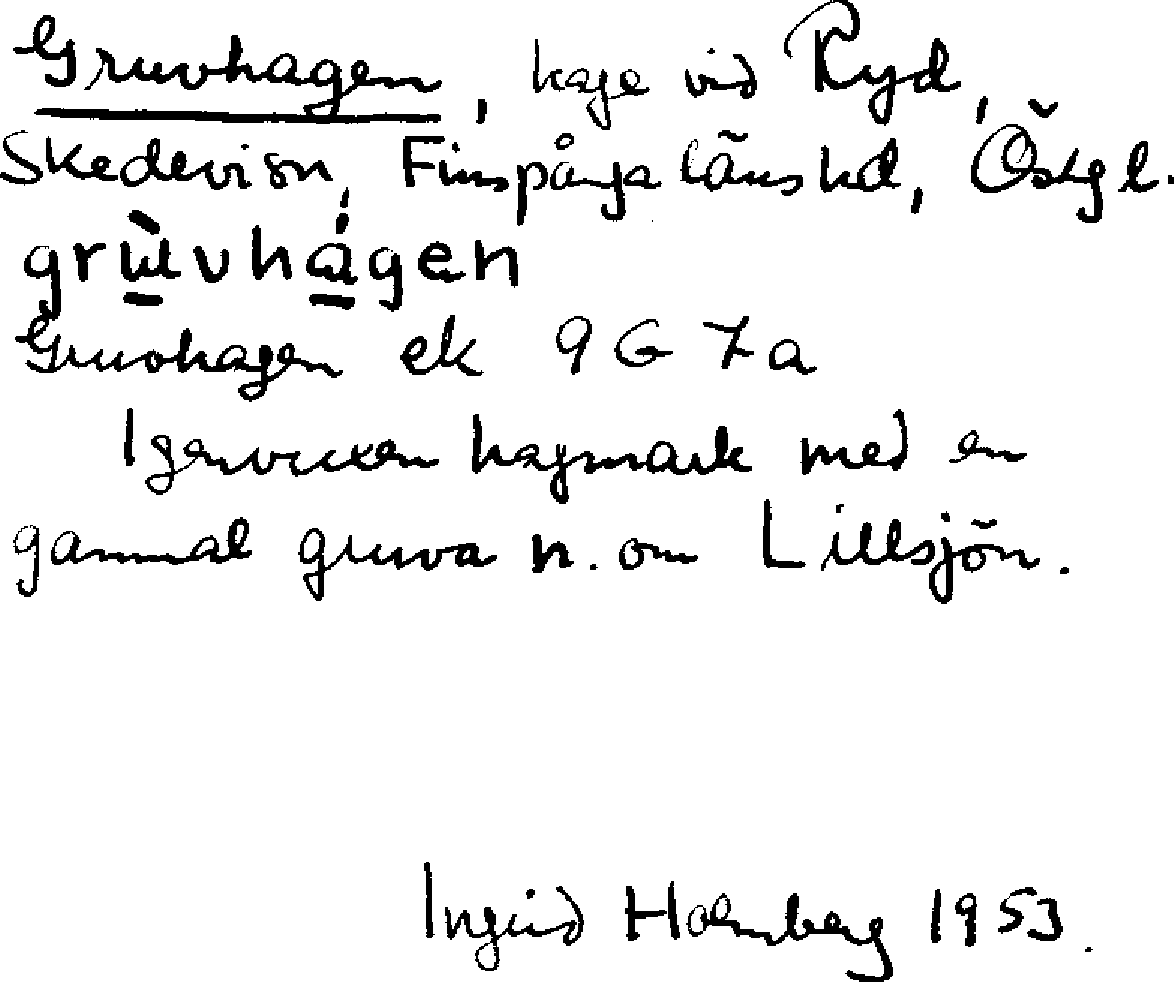 Gruvhagen, hage vid Ryd,
Skedevi sn, Finspånga läns hd, Östgl.
grùvhágen
Gruvhagen ek 9G 7a
Igenvuxen hagmark med en
gammal gruva n. om Lillsjön.
Ingrid Holmberg 1953.